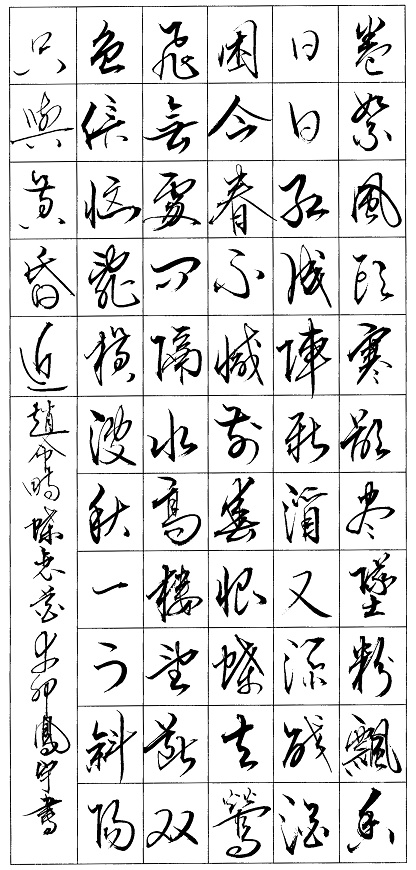 卷絮風頭寒欲尽墜粉飄香
日日紅成陣新酒又添残酒
困今春不減前春恨蝶去鶯
飛無處問隔水高樓望断双
魚信惱亂横波秋一寸斜陽
只與黄昏近
趙令畤蝶恋花辛卯鳳宇書